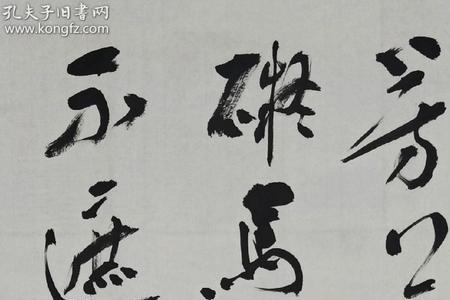 孔夫子旧书网
www.kongfz.com
芳
礙馬
不遮